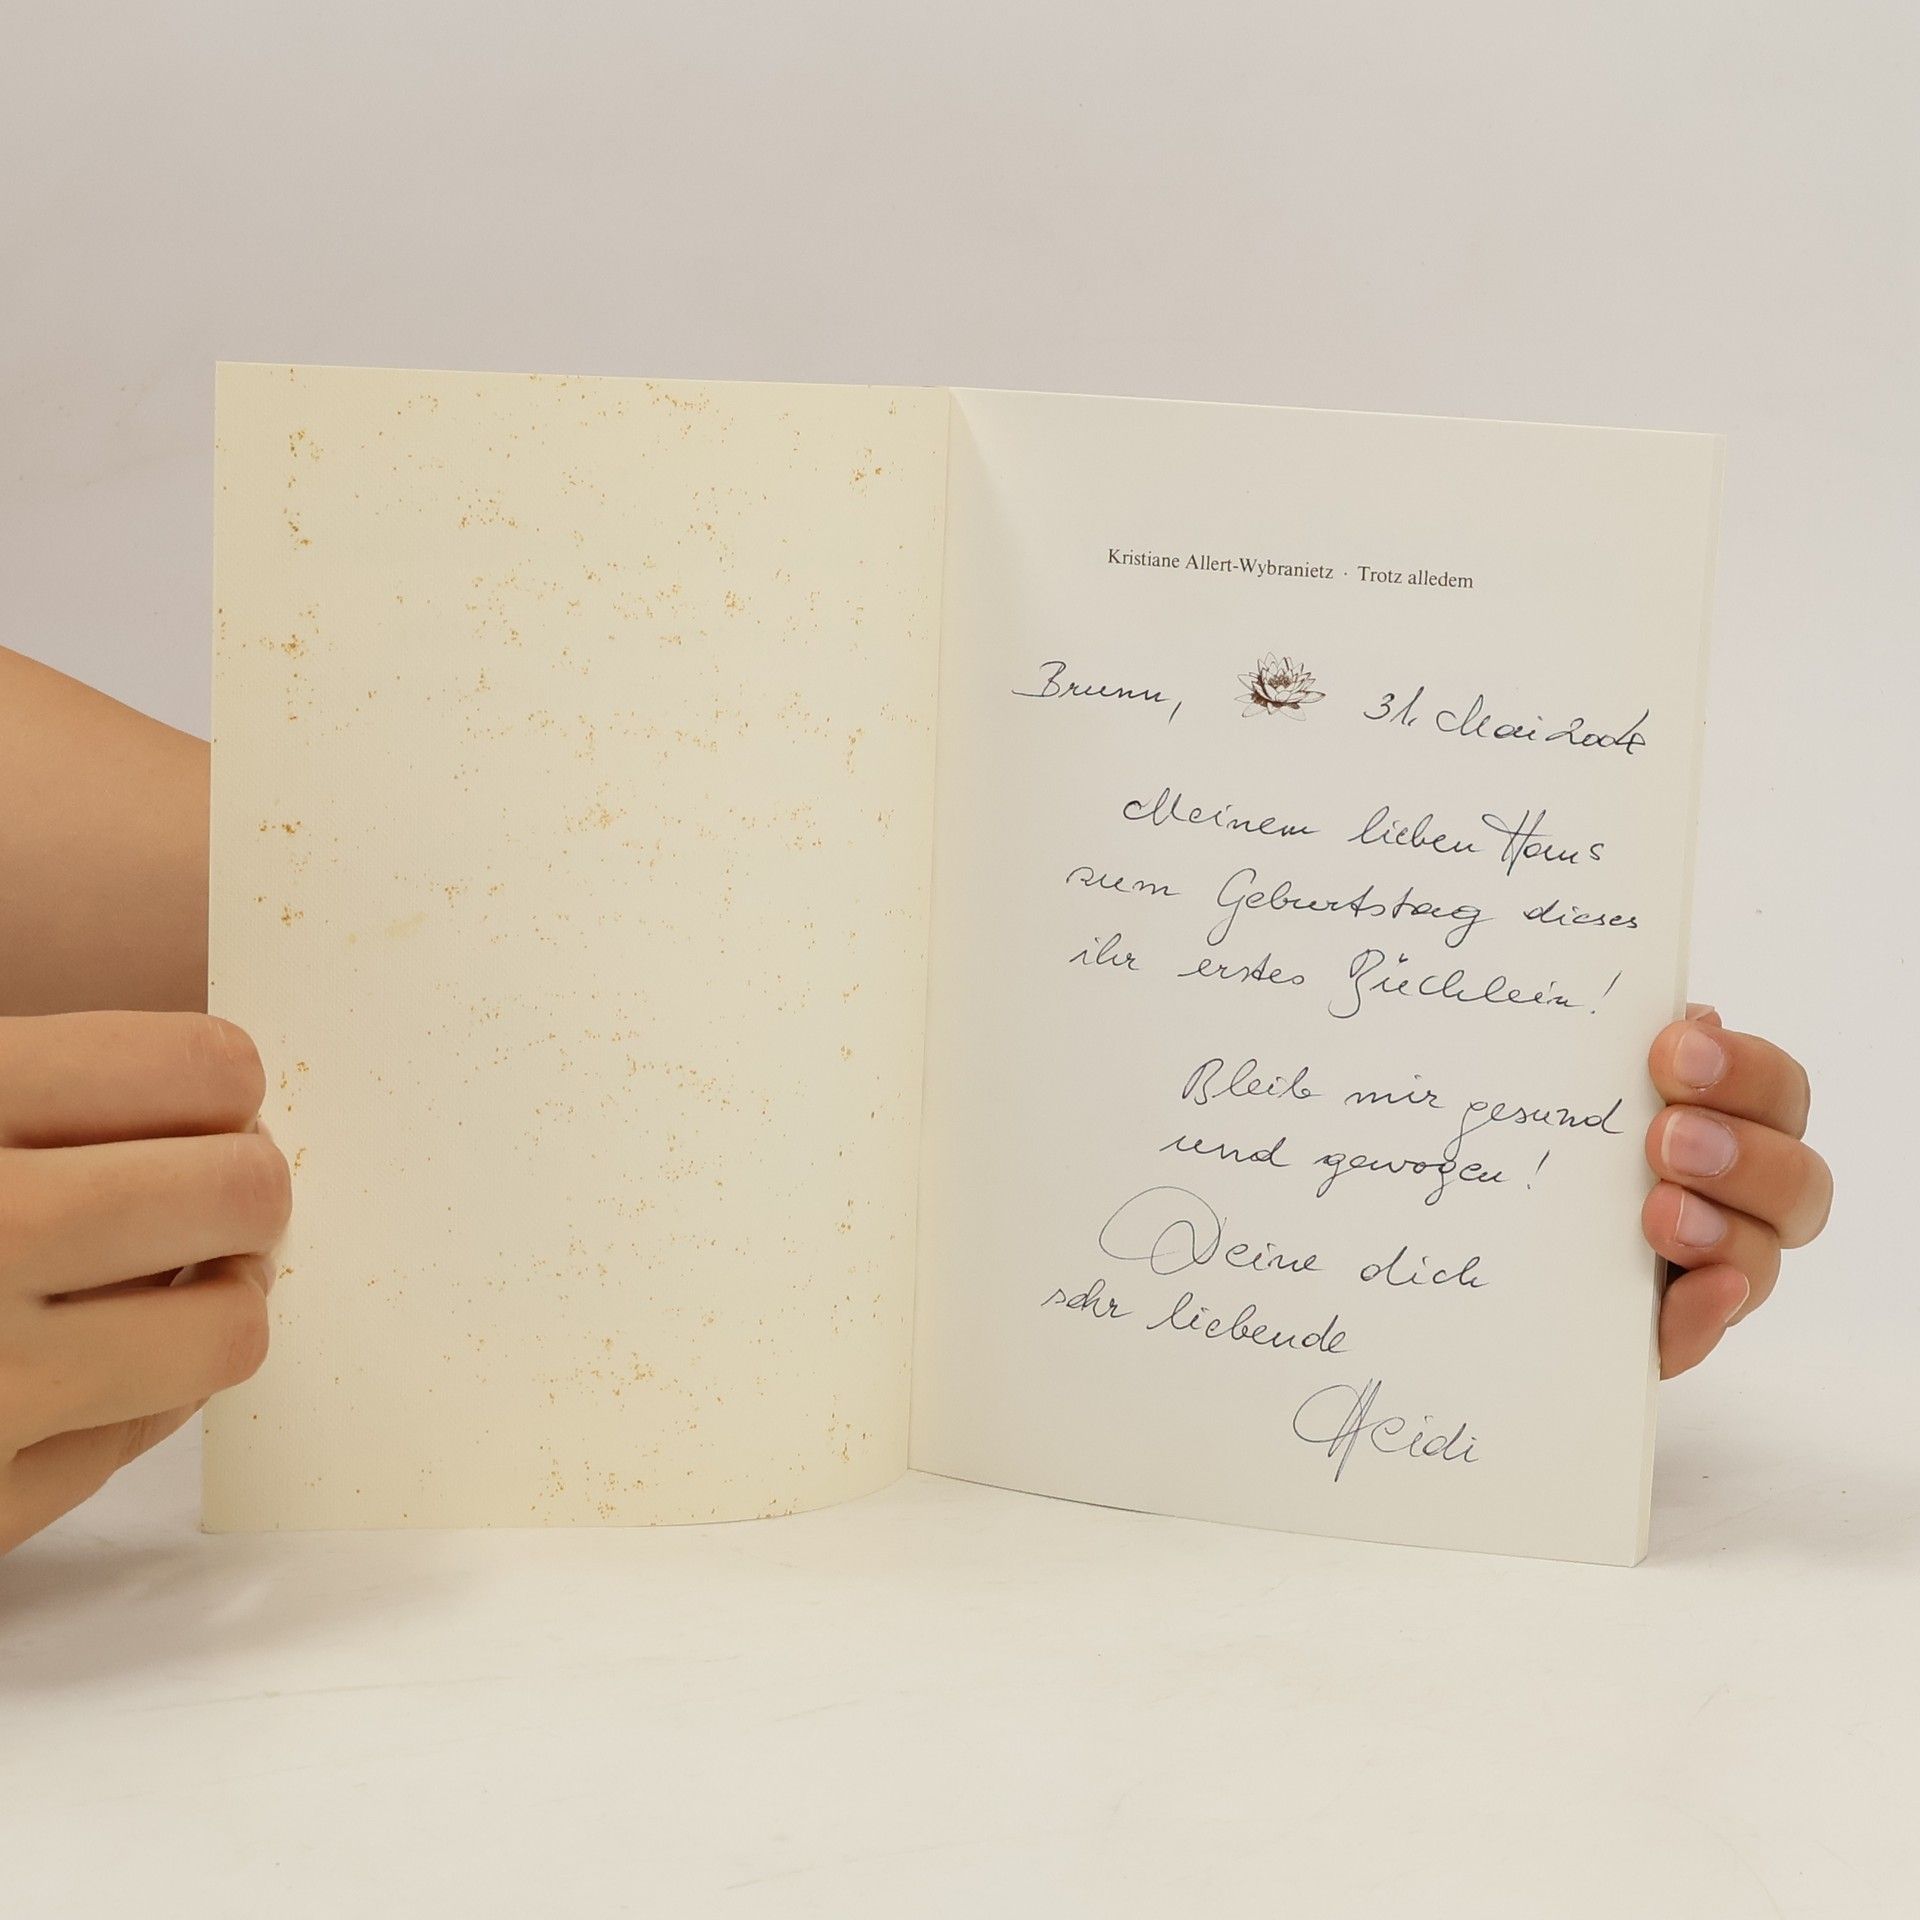 Kristiane Allert-Wybranietz · Trotz alledem
Brunn, 31. Mai 2004
Meinem lieben Hans
zum Geburtstag dieses
ihr erstes Büchlein!
Bleib mir gesund
und gewogen!
Deine dich
sehr liebende
Heidi